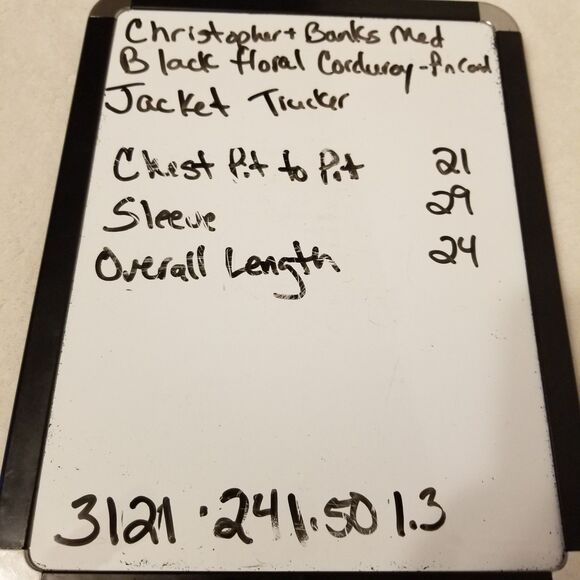 Christopher + Banks Med
Black floral Corduroy - Pncord
Jacket Trucker
Chest Pit to Pit 21
Sleeve 29
Overall Length 24
3121 · 241.50 1.3